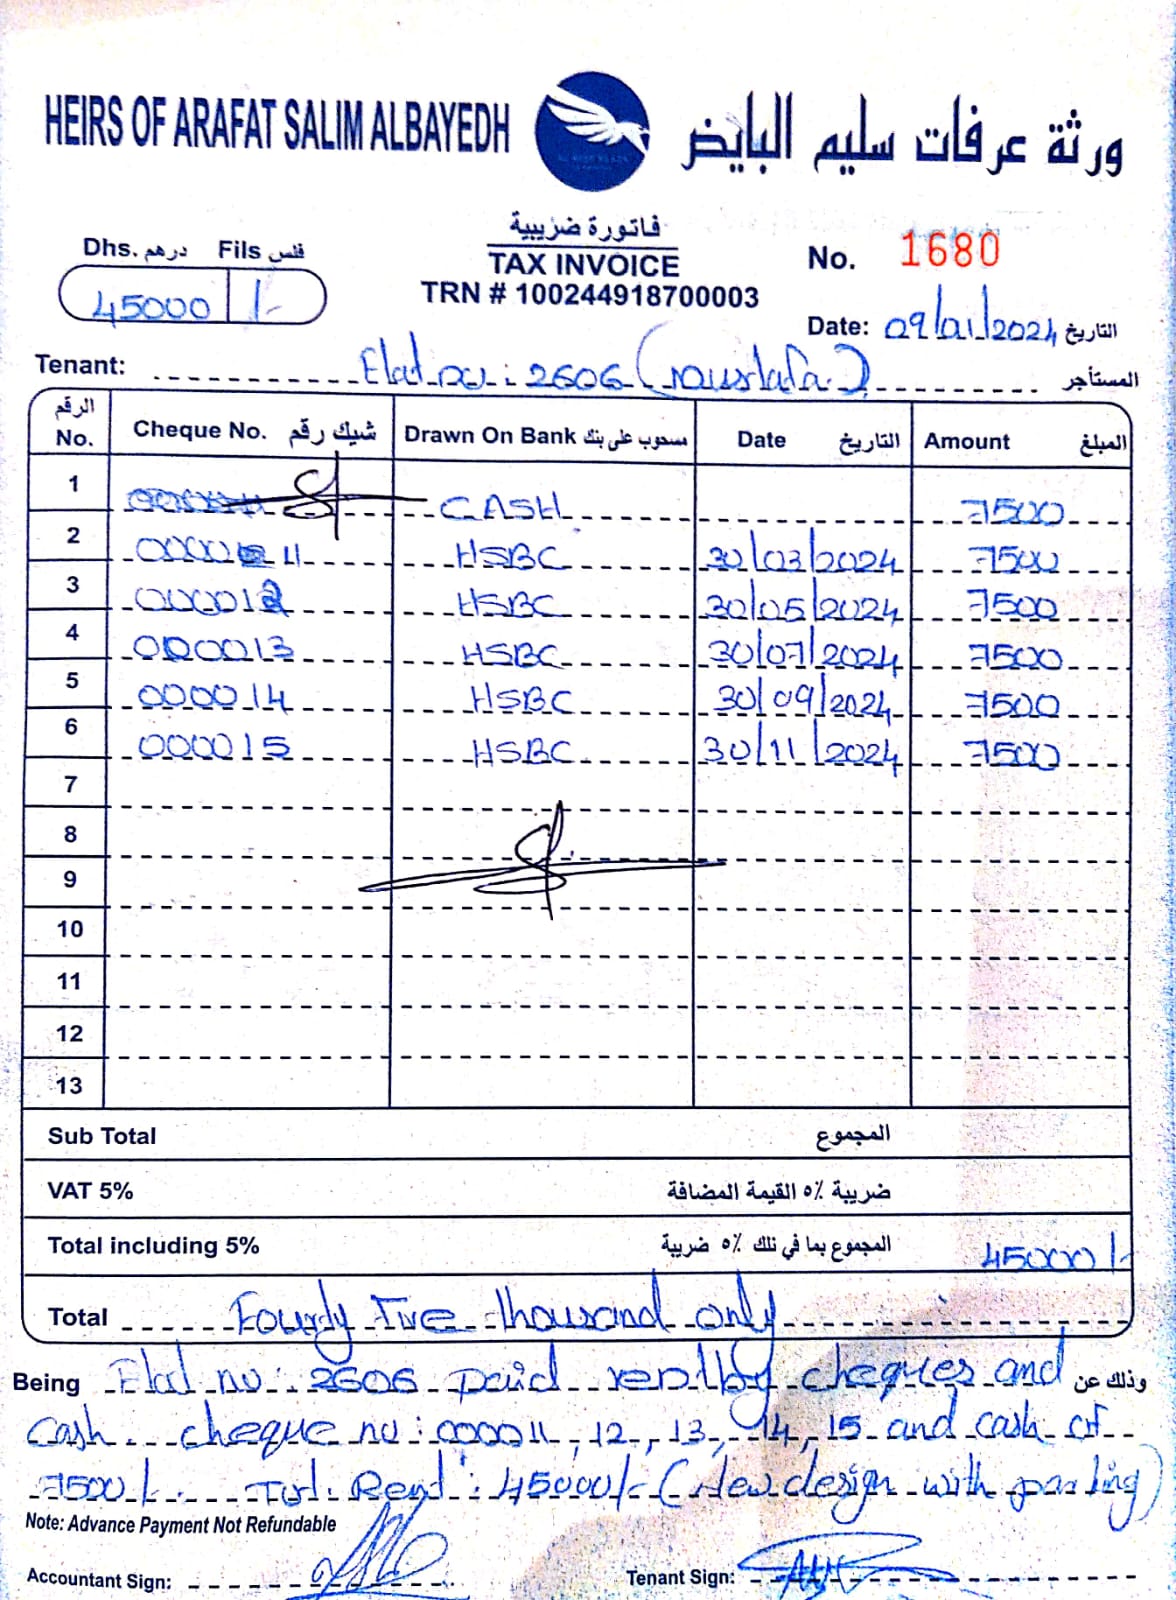 HEIRS OF ARAFAT SALIM ALBAYEDH ورثة عرفات سليم البايض
فاتورة ضريبية
TAX INVOICE
TRN # 100244918700003
Dhs. درهم Fils فلس
45000 /-
No. 1680
Date: 09/01/2024 التاريخ
Tenant: Flat no : 2606 (Mustafa) المستأجر
الرقم No. Cheque No. شيك رقم Drawn On Bank مسحوب على بنك Date التاريخ Amount المبلغ
1 CASH 7500
2 000011 HSBC 30/03/2024 7500
3 000012 HSBC 30/05/2024 7500
4 000013 HSBC 30/07/2024 7500
5 000014 HSBC 30/09/2024 7500
6 000015 HSBC 30/11/2024 7500
7
8
9
10
11
12
13
Sub Total المجموع
VAT 5% ضريبة ٥٪ القيمة المضافة
Total including 5% المجموع بما في تلك ٥٪ ضريبة 45000/-
Total Fourty Five thousand only
Being Flat no : 2606 paid rent by cheques and وذلك عن
cash. cheque no : 000011, 12, 13, 14, 15 and cash of
7500/-. Tot. Rent : 45000/- (New design with parking)
Note: Advance Payment Not Refundable
Accountant Sign: Tenant Sign: